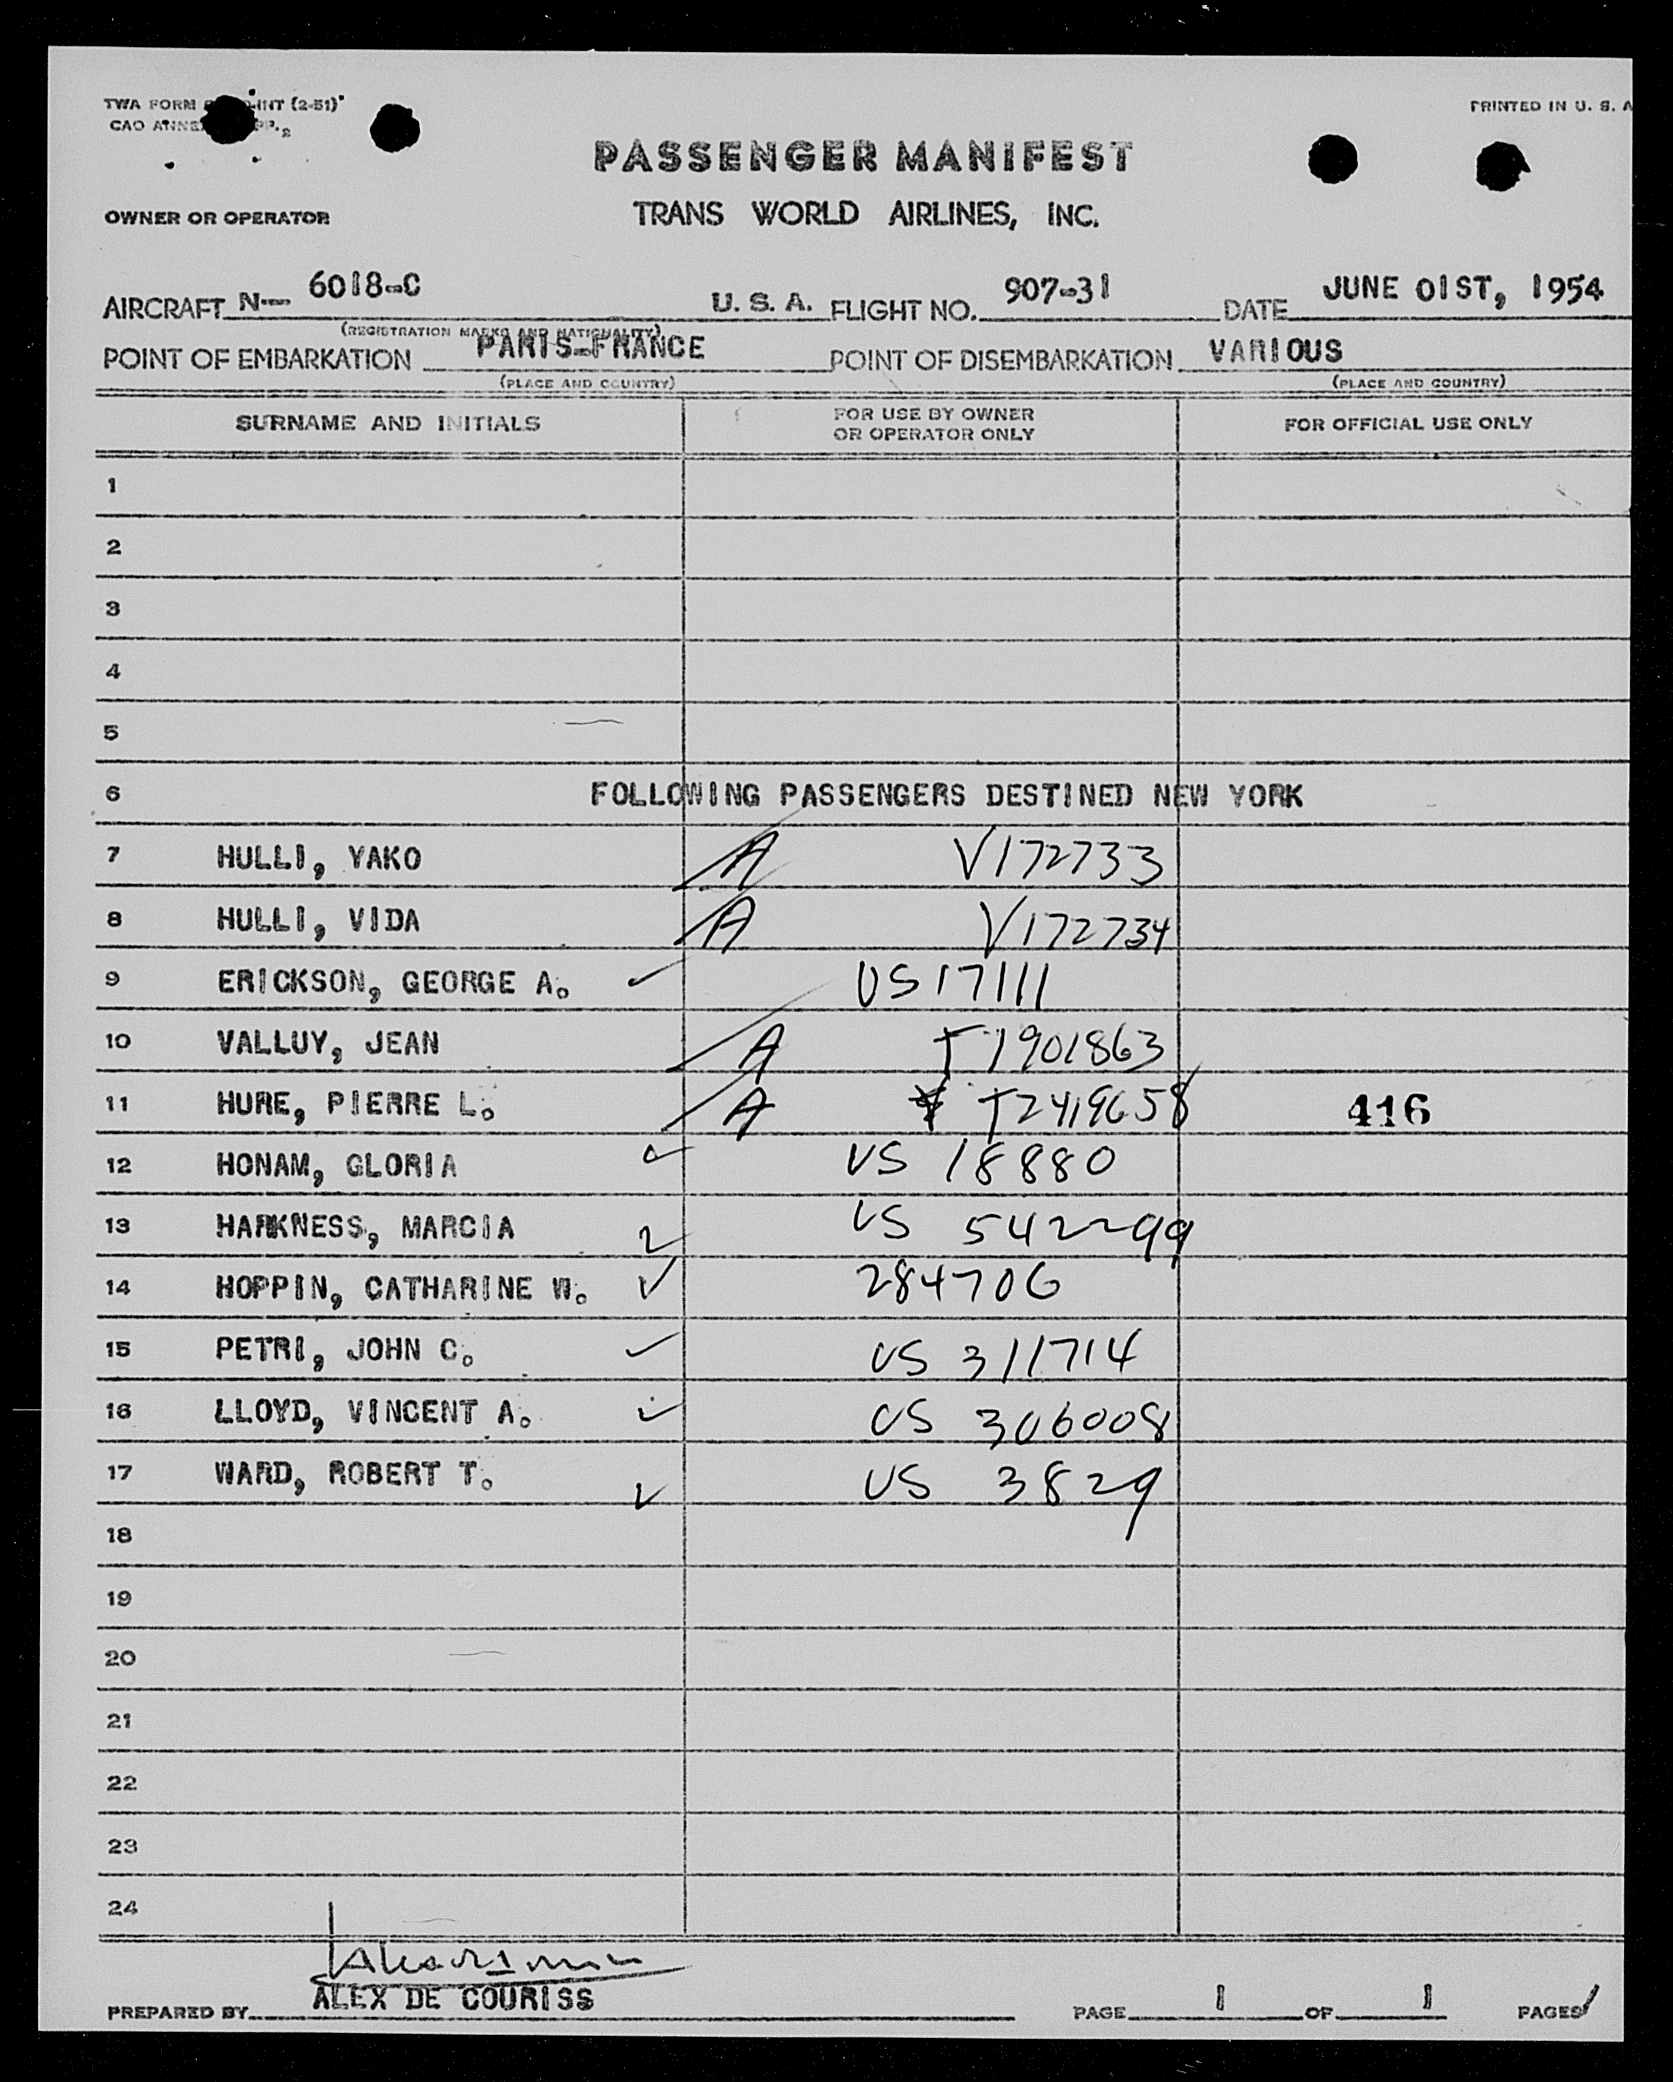 TWA FORM INT (2-51)
PRINTED IN U. S. A
PASSENGER MANIFEST
OWNER OR OPERATOR TRANS WORLD AIRLINES, INC.
AIRCRAFT N-- 6018-C U. S. A. FLIGHT NO. 907-31 DATE JUNE 01ST, 1954
(REGISTRATION MARKS AND NATIONALITY)
POINT OF EMBARKATION PARIS-FRANCE POINT OF DISEMBARKATION VARIOUS
(PLACE AND COUNTRY) (PLACE AND COUNTRY)
SURNAME AND INITIALS FOR USE BY OWNER OR OPERATOR ONLY FOR OFFICIAL USE ONLY
1
2
3
4
5
6 FOLLOWING PASSENGERS DESTINED NEW YORK
7 HULLI, YAKO A V172733
8 HULLI, VIDA A V172734
9 ERICKSON, GEORGE A. ✓ US17111
10 VALLUY, JEAN A T1901863
11 HURE, PIERRE L. A T2419658 416
12 HONAM, GLORIA ✓ US 18880
13 HARKNESS, MARCIA ✓ US 542299
14 HOPPIN, CATHARINE W. ✓ 284706
15 PETRI, JOHN C. ✓ US 311714
16 LLOYD, VINCENT A. ✓ US 306008
17 WARD, ROBERT T. ✓ US 3829
18
19
20
21
22
23
24
PREPARED BY ALEX DE COURISS PAGE 1 OF 1 PAGES